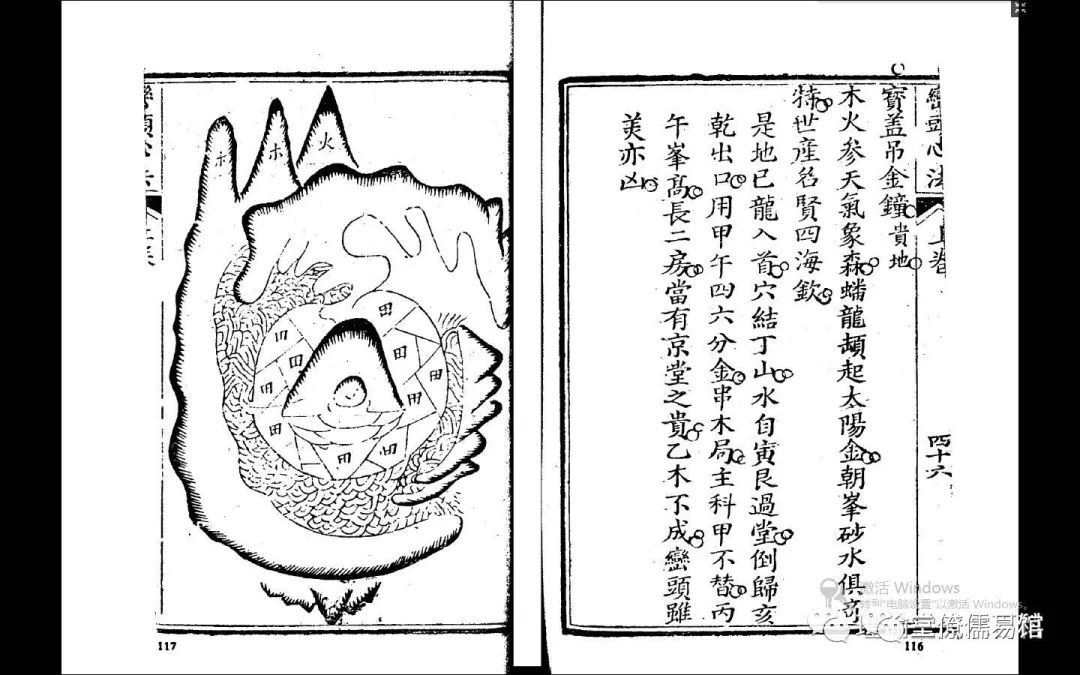 巒頭心法
上卷
四十六
寶盖吊金鐘貴地
木火参天氣象森蟠龍頓起太陽金朝峯砂水俱竒
特世產名賢四海欽
是地已龍入首穴結丁山水自寅艮過堂倒歸亥
乾出口用甲午四六分金串木局主科甲不替丙
午峯髙長二房當有京堂之貴乙木不成巒頭雖
美亦凶
116
火
木
木
田
田
田
田
田
田
田
田
田
田
117
激活 Windows
转到"电脑设置"以激活 Windows。
堂僚儒易馆